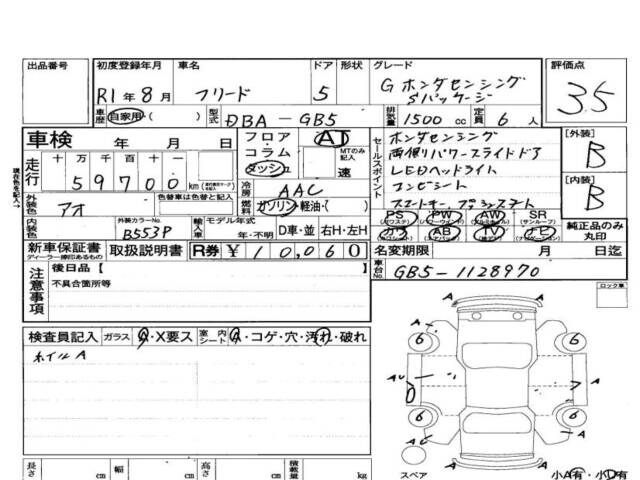 出品番号 初度登録年月 車名 ドア 形状 グレード 評価点
R1年8月 フリード 5 Gホンダセンシング
Sパッケージ 3.5
車歴 自家用・( ) 型式 DBA-GB5 排気量 1500cc 定員 6人
車検 年 月 日 フロア・コラム ダッシュ AT MTのみ記入 速
セールスポイント
ホンダセンシング
両側リパワースライドドア
LEDヘッドライト
コンビシート
[外装] B
[内装] B
走行 十万千百十 59700km
冷房 AAC
外装色 アオ 色替車は色替と記入 燃料 ガソリン・軽油・( )
PS PW AW SR(サンルーフ)
AB TV ナビ
純正品のみ丸印
内装色 外装カラーNo. BS53P 輸入車 モデル年式 年・不明 D車・並 右H・左H
新車保証書 取扱説明書 R券 ¥10,060 名変期限 月 日迄
ディーラー捺印あるもの
車台No. GB5-1128970
注意事項 後日品 [ ]
不具合箇所等
ロック車
検査員記入 ガラス A・X要ス 室内シート A・コゲ・穴・汚れ・破れ
ホイルA
A A
6 6
AU A
6 6
AU A
A
スペア 小A有・小D有
長さ cm 幅 cm 高さ cm 積載量 kg
現在色を記入→